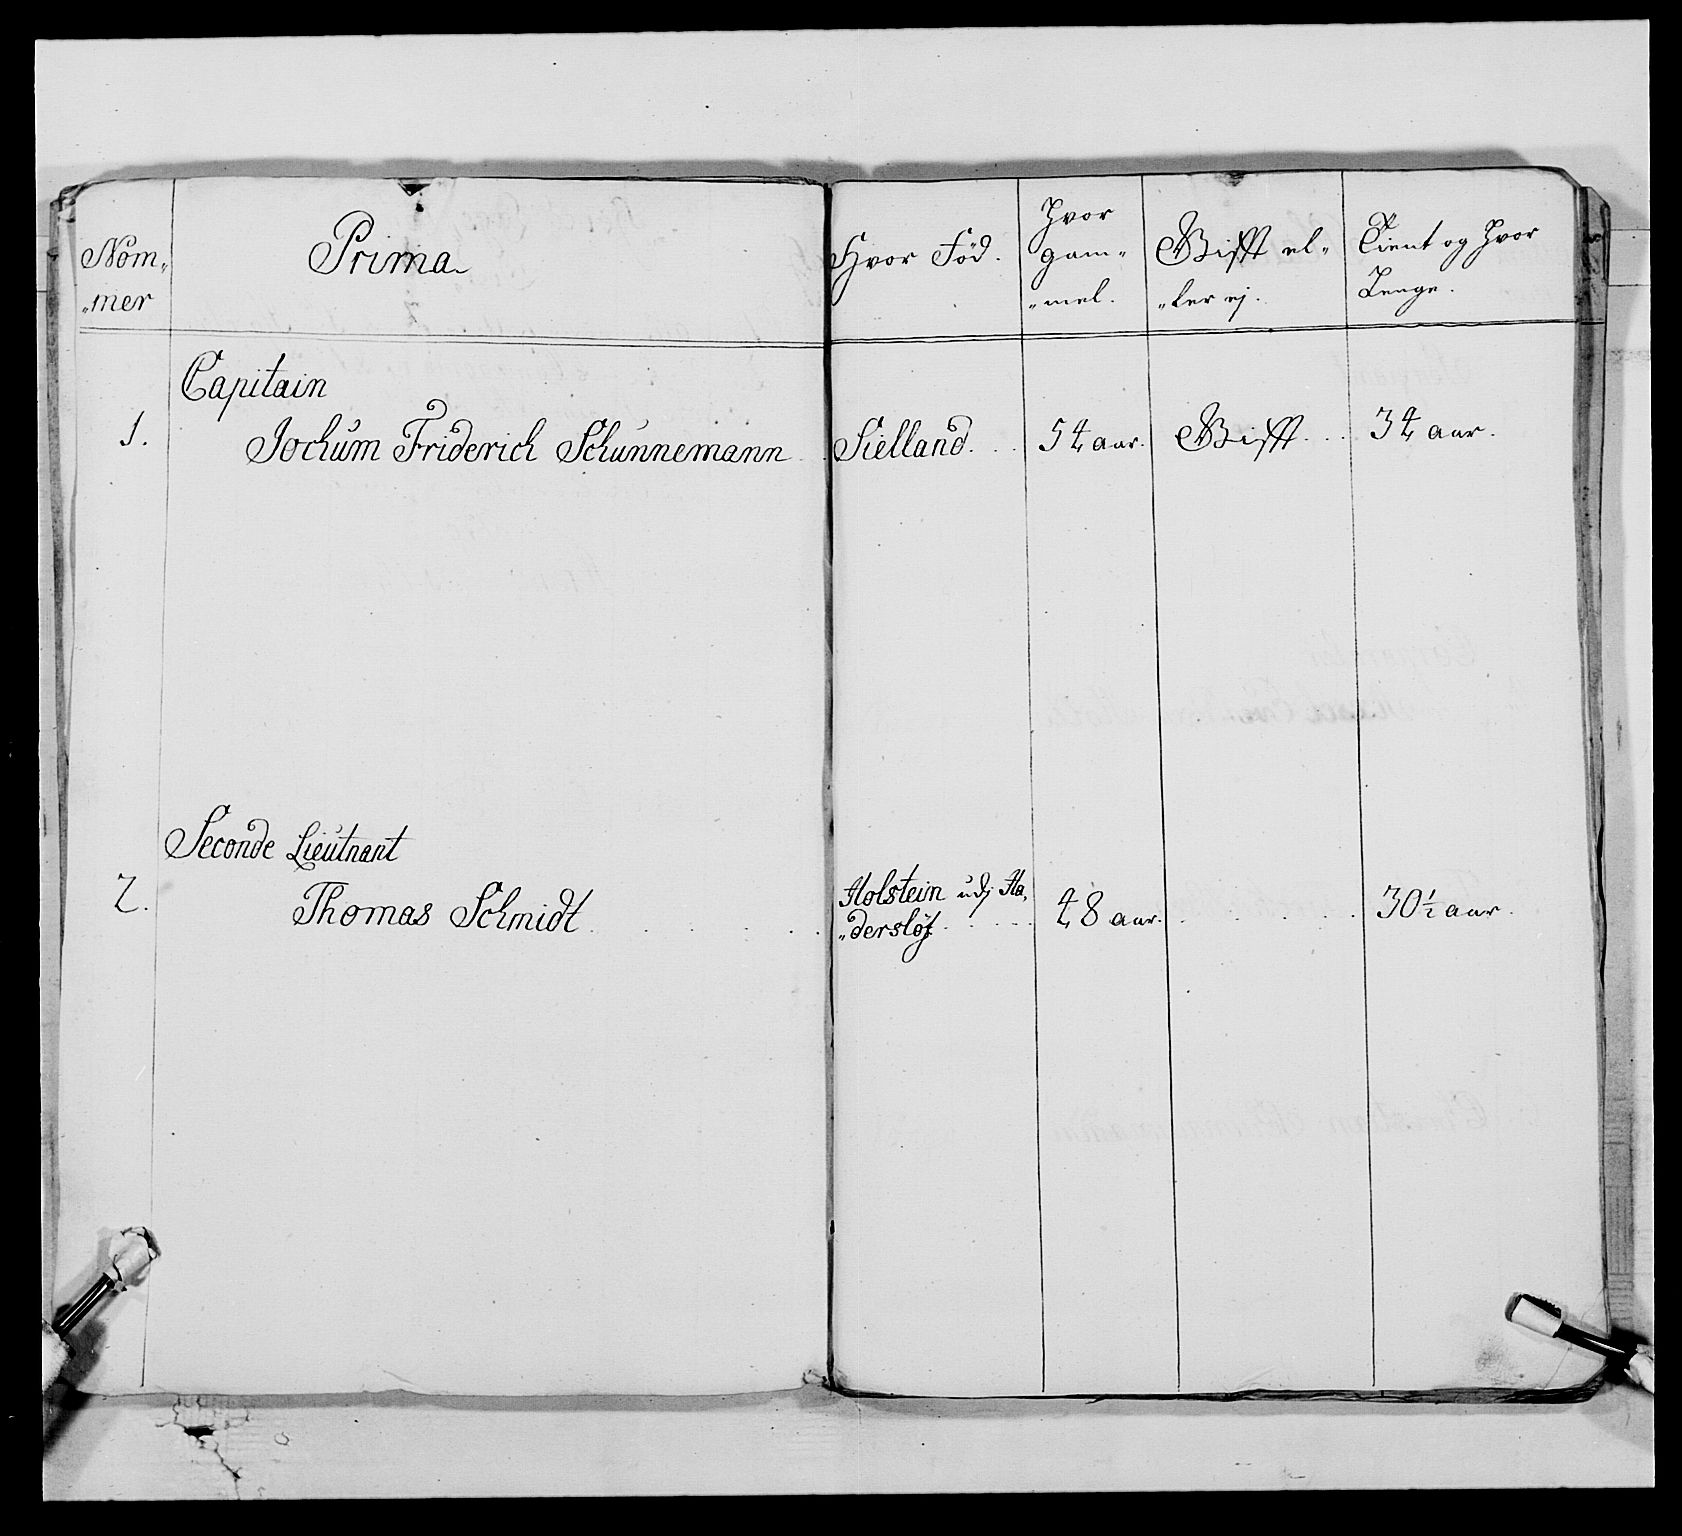 Nom„
„mer
Prima
Hvor Föd.
Hvor
gam„
„mel.
Gifft el„
„ler ej.
Tient og Hvor
Lenge.
Capitain
1.
Jochum Friderich Schunnemann
Sielland
54 aar.
Gifft
34 aar.
Seconde Lieutnant
2.
Thomas Schmidt
Holstein udj Ha„
„dersløf
48 aar.
30½ aar.